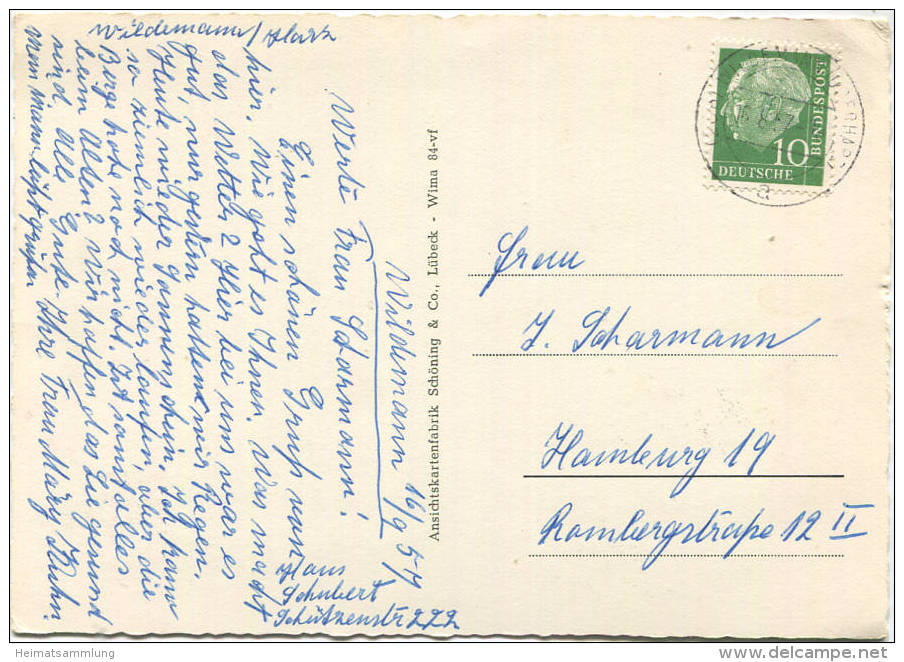 Wildemann/Harz
Wildemann 16/9 57
Werte Frau Scharmann!
Einen schönen Gruß von
hier. Wie geht es Ihnen. Was macht
das Wetter? Hier bei uns war es
gut, nur gestern hatten wir Regen.
Heute wieder Sonnenschein. Ich kann
so ziemlich wieder laufen, aber die
Berge hoch noch nicht. Ist sonst alles
beim Alten? Wir hoffen das Sie gesund
sind. Alles Gute. Ihre Frau Mary Kuhn.
Mein Mann läßt grüßen
Haus
Schubert
Schützenstr 222
Ansichtskartenfabrik Schöning & Co., Lübeck - Wima 84-vf
10
DEUTSCHE
BUNDESPOST
a
Frau
J. Scharmann
Hamburg 19
Rombergstraße 12 II
Heimatsammlung
www.delcampe.net